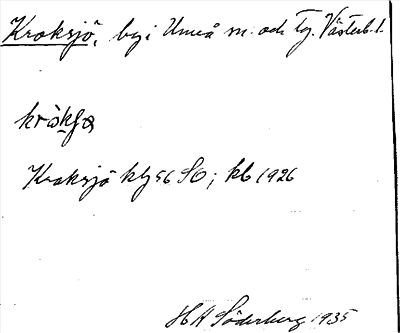 Kroksjö, by i Umeå sn. och tg. Västerb. l.
Kroksjö kbg 56 SO; kb 1926
H A Söderberg 1935